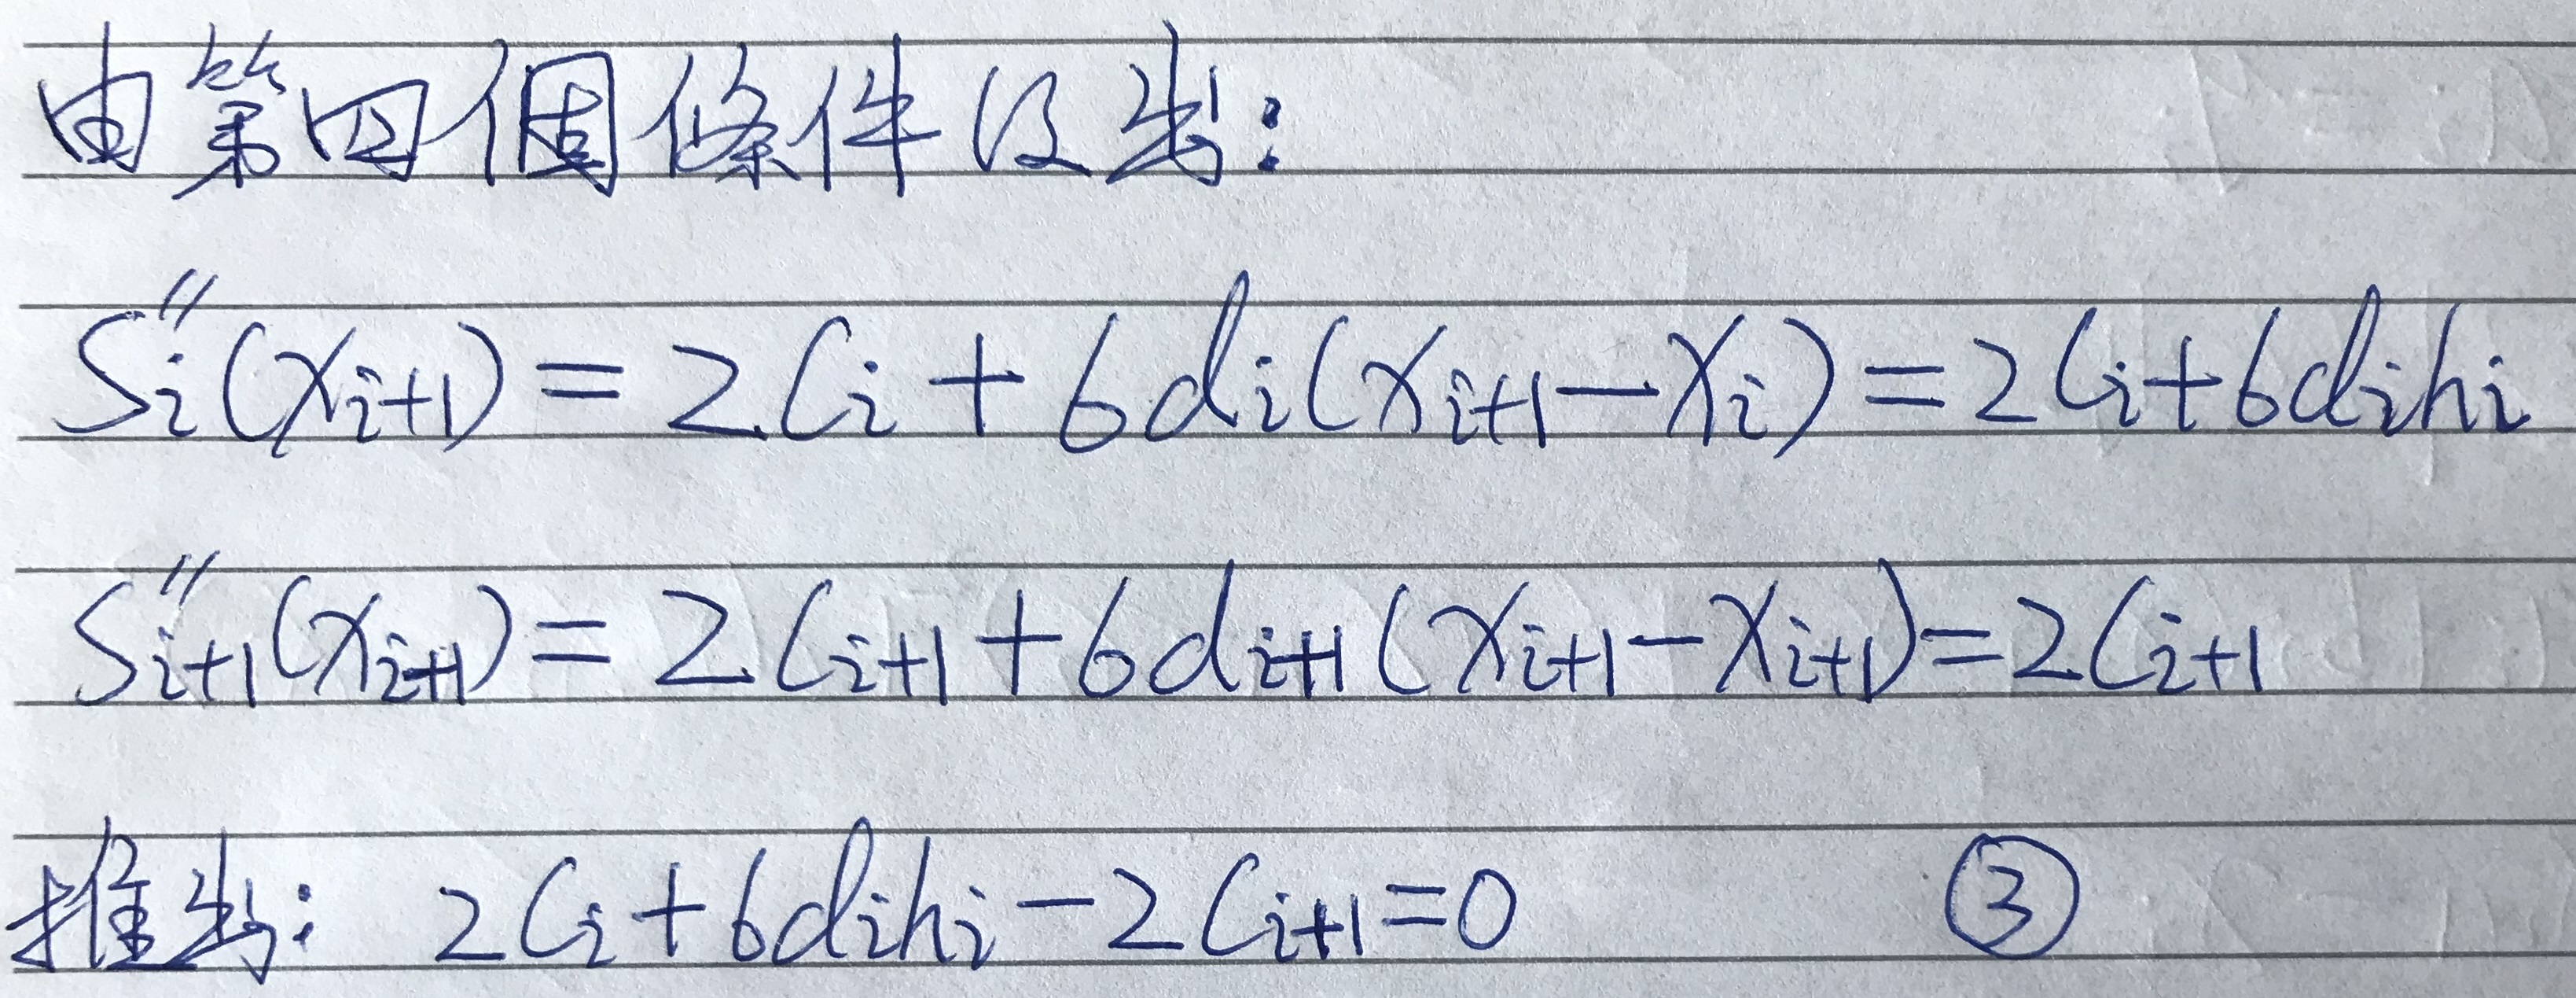 由第四個條件得出:
S''ᵢ(xᵢ₊₁) = 2Cᵢ + 6dᵢ(xᵢ₊₁ - xᵢ) = 2Cᵢ + 6dᵢhᵢ
S''ᵢ₊₁(xᵢ₊₁) = 2Cᵢ₊₁ + 6dᵢ₊₁(xᵢ₊₁ - xᵢ₊₁) = 2Cᵢ₊₁
推出: 2Cᵢ + 6dᵢhᵢ - 2Cᵢ₊₁ = 0 ③